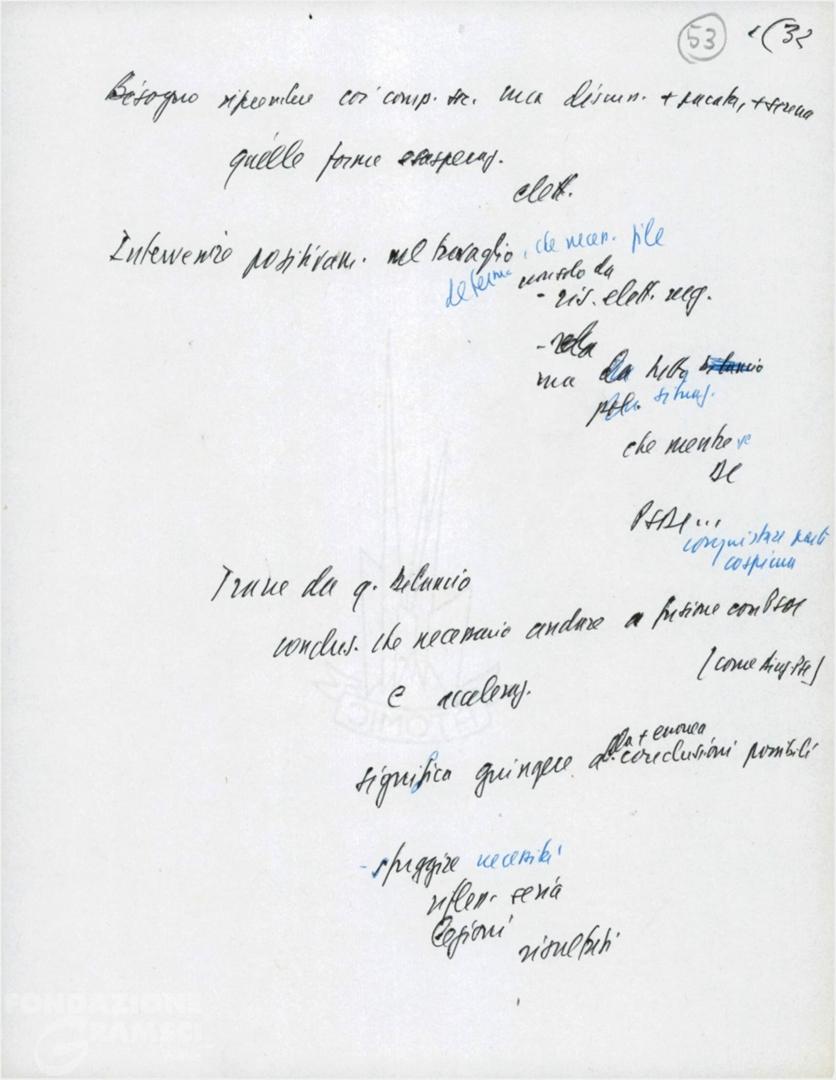 53 (32
Bisogno riprendere coi comp. soc. una discuss. + pacata, + serena
quelle forme esasperaz.
elett.
Intervenire positivam. nel travaglio, che necess. file
determ. non solo da
- ris. elett. reg.
ma da tutto bilancio
pol. situaz.
che mentre
DC
PSDI...
conquistare parte
cospicua
Trarre da q. bilancio
conclus. che necessario andare a fusione con PSDI
[come
e acceleraz.
significa giungere alla + erronea conclusioni possibili
- sfuggire necessità
rifless. seria
lezioni
risultati
FONDAZIONE
GRAMSCI